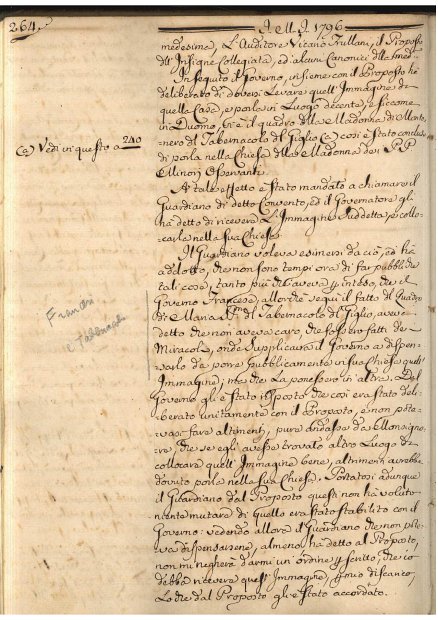 264.
A. M. D. 1796
medesima, L'Auditore Vicario Trullani, il Proposto
dell'Insigne Collegiata, ed alcuni Canonici della med.
In seguito il Governo, insieme con il Proposto ha
deliberato di doversi Levare quell'Immagine da
quella Casa, e porla in Luogo decente, e siccome
in Duomo vi è il quadro della Madonna di
nero del Tabernacolo del Giglio (a) così è stato concluso
(a) Vedi in questo a 240
di porla nella Chiesa della Madonna de PP.
Minori Osservanti.
A tale effetto è stato mandato a chiamare il
Guardiano di detto Convento, ed il Governatore gli
ha detto di ricevere L'Immagine Suddetta, e collo-
carla nella sua Chiesa.
Il Guardiano voleva esimersi da ciò, ed ha
addotto, che non sono tempi ora di far pubbliche
tali cose, tanto più che aveva inteso, che il
Governo Francese, allorché seguì il fatto del Quadro
di Maria SS. del Tabernacolo del Giglio, aveva
detto che non aveva caro, che si fossero fatti de
Miracoli, onde Supplicava il Governo a dispen-
sarlo da porre pubblicamente in sua Chiesa quell'
Immagine; ma che La ponessero in altra. Dal
Governo gli è stato risposto che così era stato deli-
berato unitamente con il Proposto, e non pote-
vasi fare altrimenti, pure andasse da Monsigno-
re, che se egli avesse trovato altro Luogo da
collocare quell'Immagine bene, altrimenti avrebbe
dovuto porla nella sua Chiesa. Portatosi adunque
il Guardiano dal Proposto questi non ha voluto
niente mutare di quello era stato stabilito con il
Governo: vedendo allora il Guardiano che non pote-
va dispensarsene, almeno ha detto al Proposto,
non mi negherà darmi un ordine in scritto, che io
debba ricevere quest'Immagine, p mio discarico,
Lo che dal Proposto gl'è stato accordato.
Francesi
e Tabernacolo